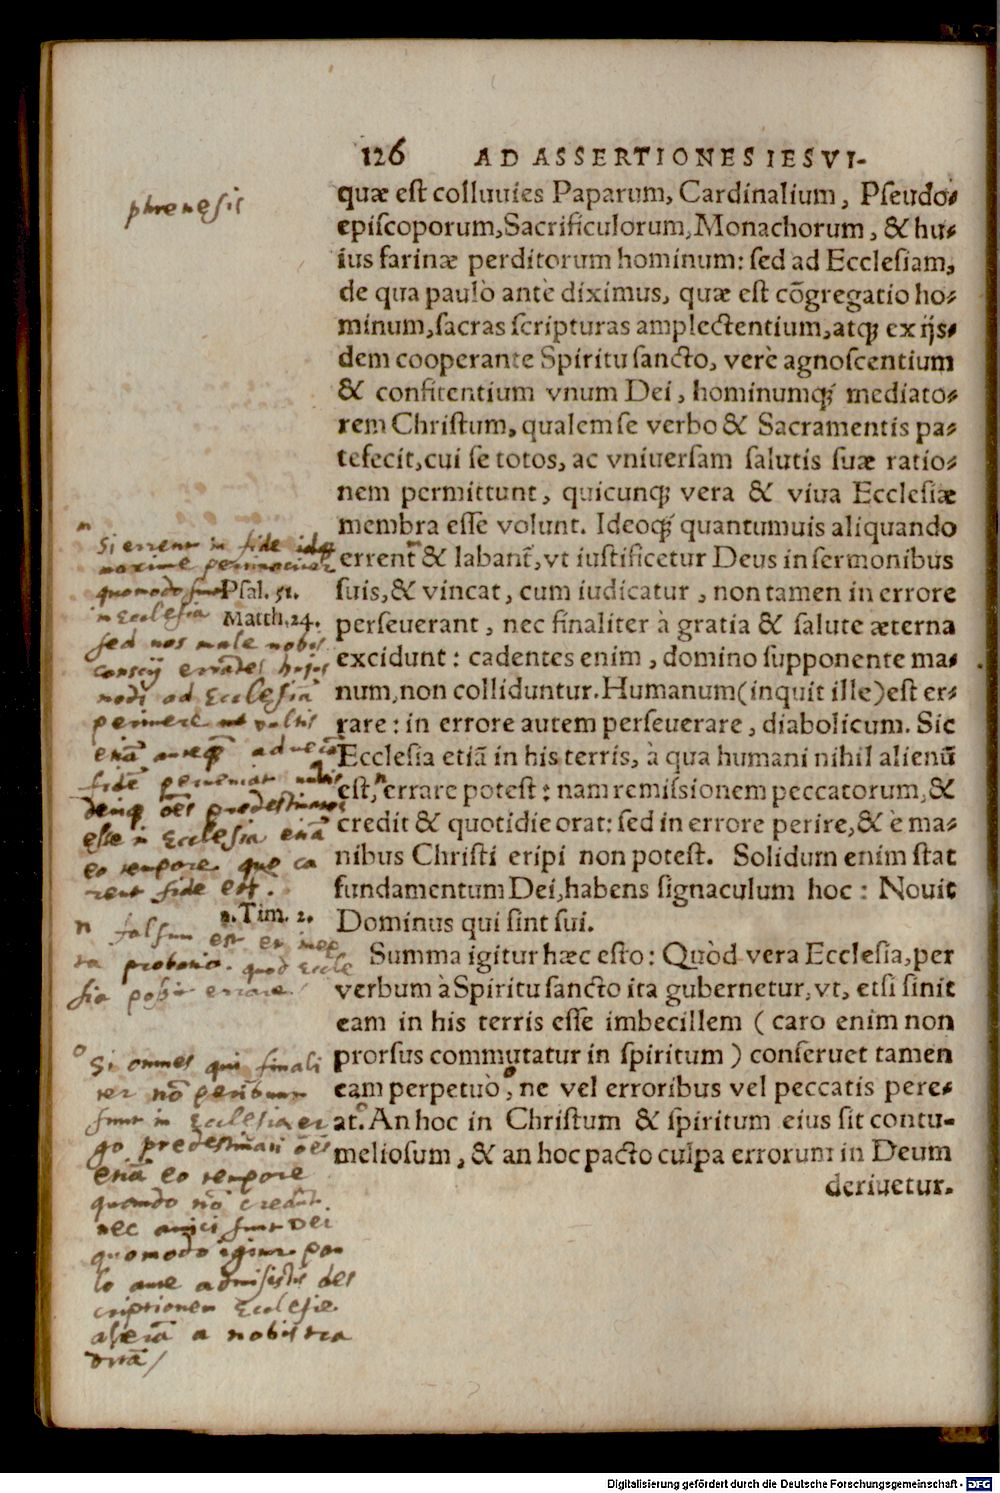 126 AD ASSERTIONES IESVI-
phrenesis
quæ est colluuies Paparum, Cardinalium, Pseudo-
episcoporum, Sacrificulorum, Monachorum, & hu-
ius farinæ perditorum hominum: sed ad Ecclesiam,
de qua paulò antè diximus, quæ est cõgregatio ho-
minum, sacras scripturas amplectentium, atq; ex ijs-
dem cooperante Spiritu sancto, verè agnoscentium
& confitentium vnum Dei, hominumq́; mediato-
rem Christum, qualem se verbo & Sacramentis pa-
tefecit, cui se totos, ac vniuersam salutis suæ ratio-
nem permittunt, quicunq; vera & viua Ecclesiæ
membra esse volunt. Ideoq́; quantumuis aliquando
errent & labant̃, vt iustificetur Deus in sermonibus
suis, & vincat, cum iudicatur, non tamen in errore
perseuerant, nec finaliter à gratia & salute æterna
excidunt: cadentes enim, domino supponente ma-
num, non colliduntur. Humanum (inquit ille) est er-
rare: in errore autem perseuerare, diabolicum. Sic
Ecclesia etiã in his terris, à qua humani nihil alienũ
est, n errare potest: nam remissionem peccatorum, &
credit & quotidie orat: sed in errore perire, & è ma-
nibus Christi eripi non potest. Solidum enim stat
fundamentum Dei, habens signaculum hoc: Nouit
Dominus qui sint sui.
Summa igitur hæc esto: Quòd vera Ecclesia, per
verbum à Spiritu sancto ita gubernetur, vt, etsi sinit
eam in his terris esse imbecillem (caro enim non
prorsus commutatur in spiritum) conseruet tamen
eam perpetuò, ne vel erroribus vel peccatis pere-
at. o An hoc in Christum & spiritum eius sit contu-
meliosum, & an hoc pacto culpa errorum in Deum
deriuetur.
m
Si errent in fide idq
maxime pertinaciter
quomodo sunt
Psal. 51.
in Ecclesia
Matth. 24.
sed nos male nobis
conscij errãtes hujus
modi ad Ecclesiã
pertinere ut vultis
etiã anteq̃ ad verã
fidẽ perveniat
deniq oẽs predestinatos
esse in Ecclesia etiã
eo tempore quo ca
rent fide etc.
2. Tim. 2.
n falsum est et inep
ta probatio. quod Eccle
sia possit errare.
o
Si omnes qui finali
ter nõ peribunt
sunt in Ecclesia er
go predestinati oẽs
etiã eo tempore
quando nõ credũt
nec amici sunt Dei
quomodo igitur pau
lo ante admisistis des
criptionem Ecclesie
aliã a nobis tra
ditã /
Digitalisierung gefördert durch die Deutsche Forschungsgemeinschaft - DFG